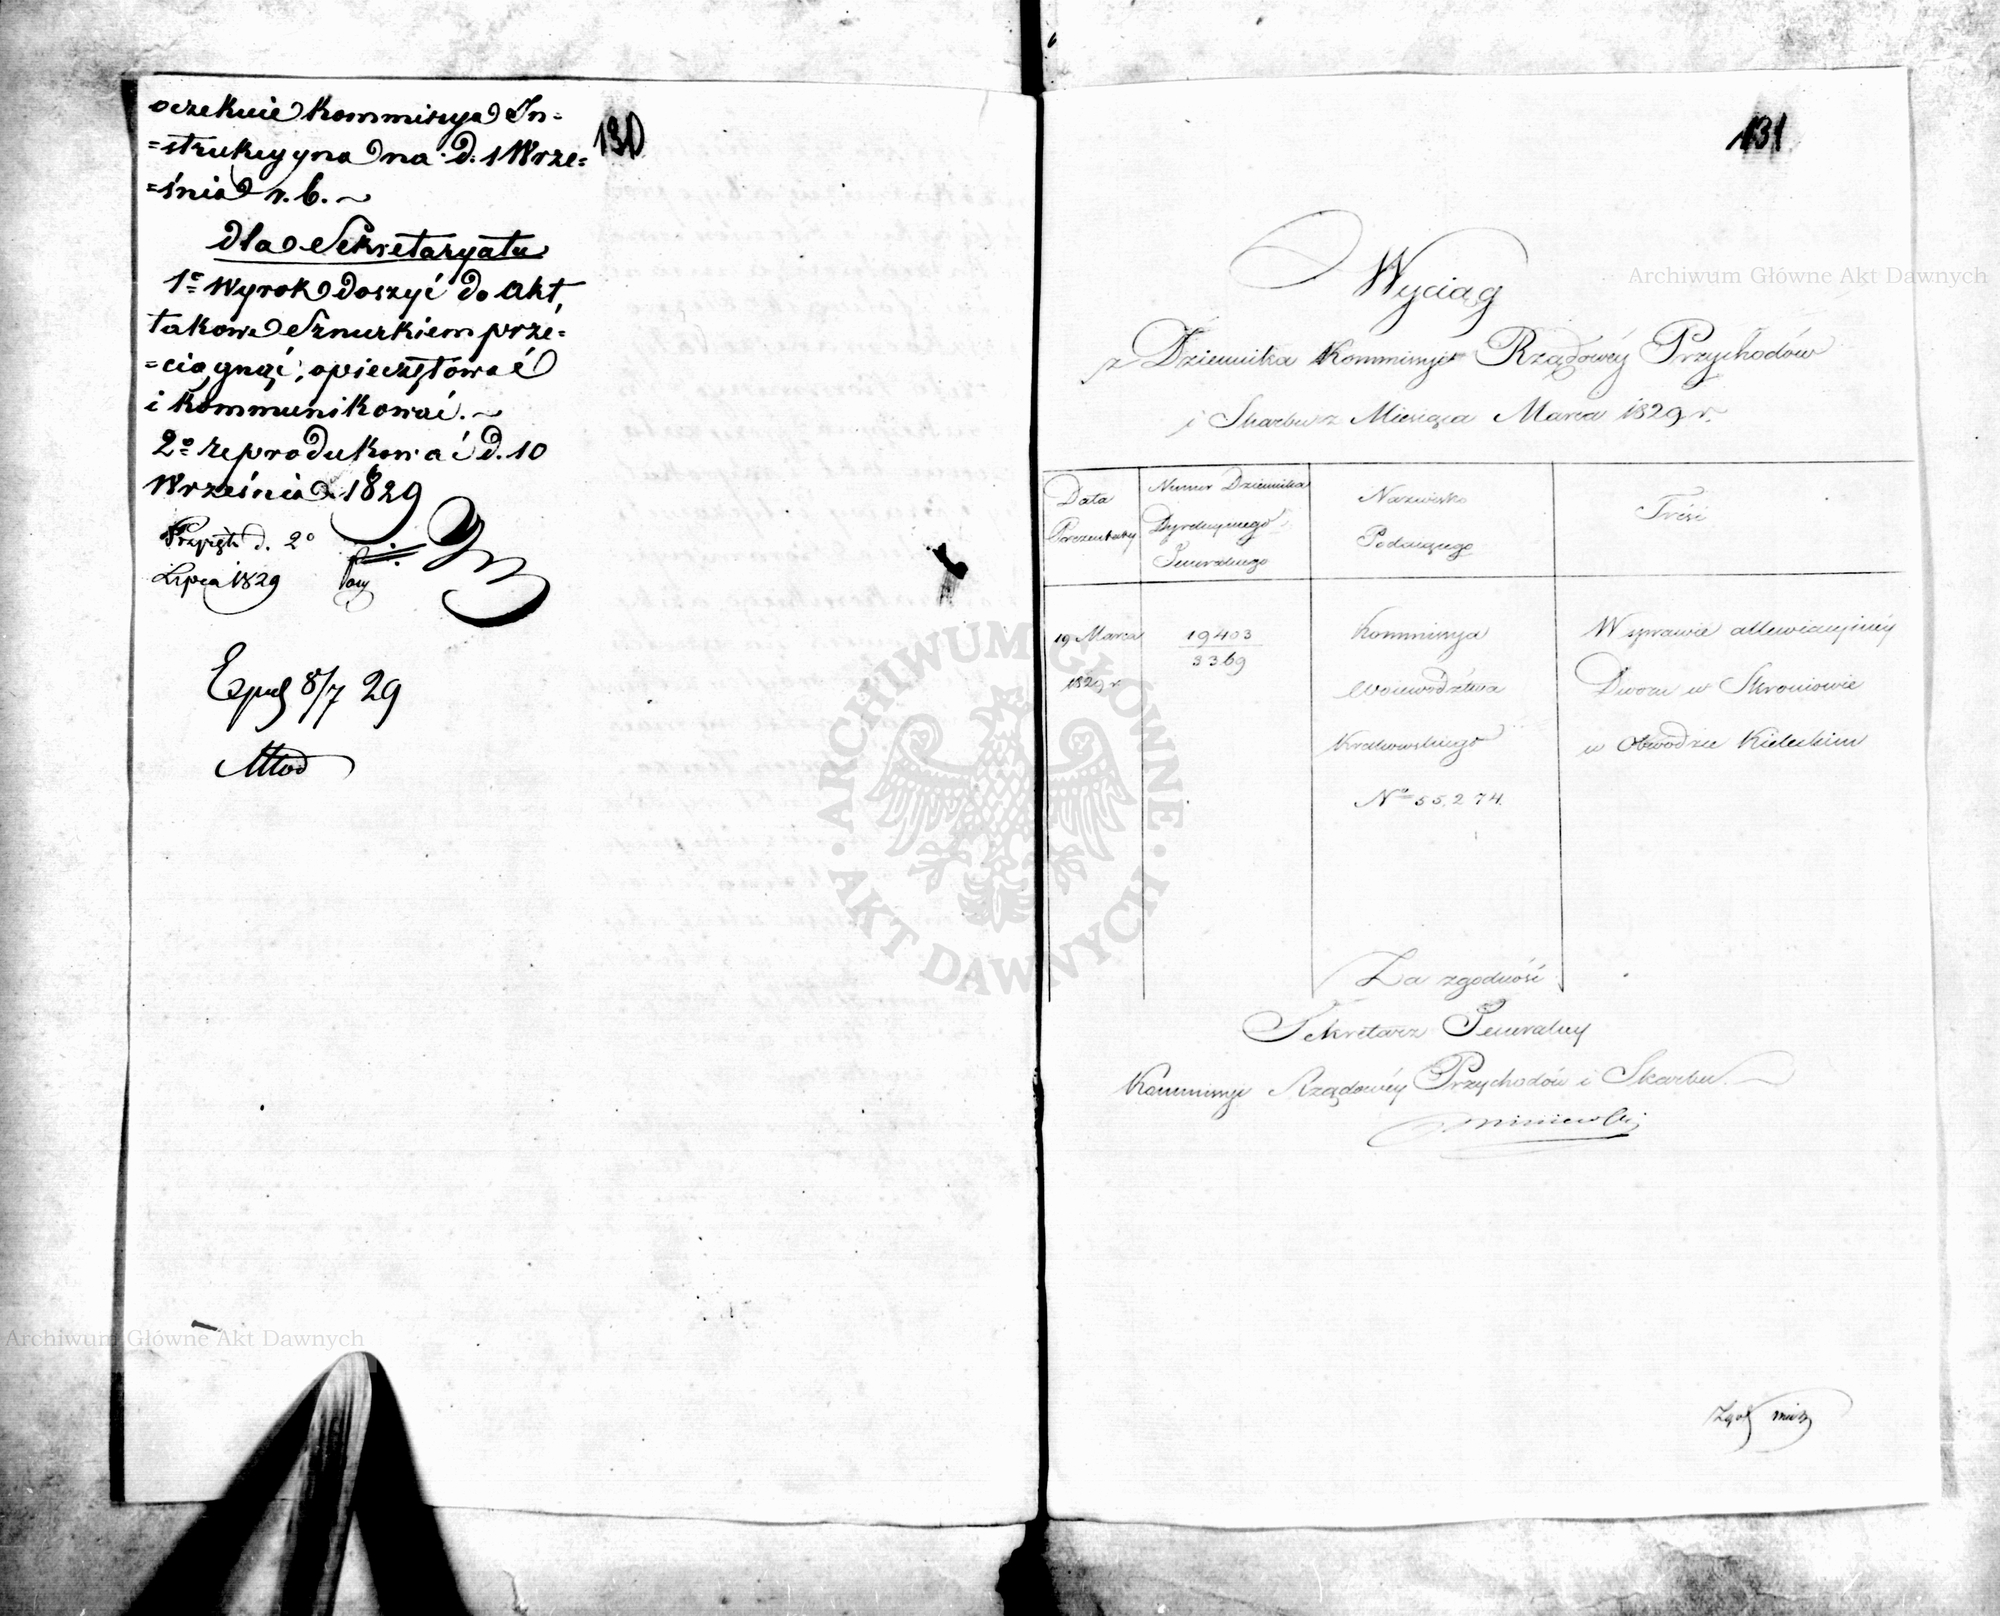 130
oczekuie Kommissya In=
=strukcyyna na d. 1 Wrze=
=śnia r. b. ~
dla Sekretaryatu
1º Wyrok doszyć do Akt,
takowe Sznurkiem prze=
=ciągnąć, opieczętować
i kommunikować. ~
2º reprodukować d. 10
Września 1829
d. 2º
Lipca 1829
Exp 8/7 29
131
Wyciąg
z Dziennika Kommissyi Rządowéy Przychodów
i Skarbu z Miesiąca Marca 1829 r.
Data Prezentaty
Numer Dziennika Dyrekcyinego Jeneralnego
Nazwisko Podaiącego
Treść
19 Marca 1829 r
19403
3369
Kommissya
Woiewództwa
Krakowskiego
Nº 55,274.
W sprawie allewiacyinéy
Dworu w Skroniowie
w Obwodzie Kieleckim
Za zgodność
Sekretarz Jeneralny
Kommissyi Rządowéy Przychodów i Skarbu.
ARCHIWUM GŁÓWNE · AKT DAWNYCH ·
Archiwum Główne Akt Dawnych
Archiwum Główne Akt Dawnych